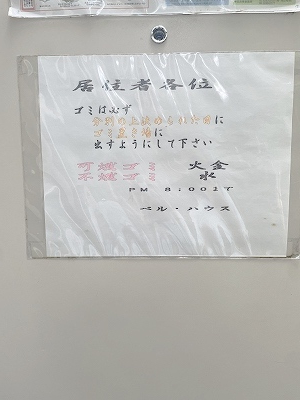 居住者各位
ゴミは必ず
分別の上決められた日に
ゴミ置き場に
出すようにして下さい
可燃ゴミ 火金
不燃ゴミ 水
PM 8:00まで
ベル・ハウス